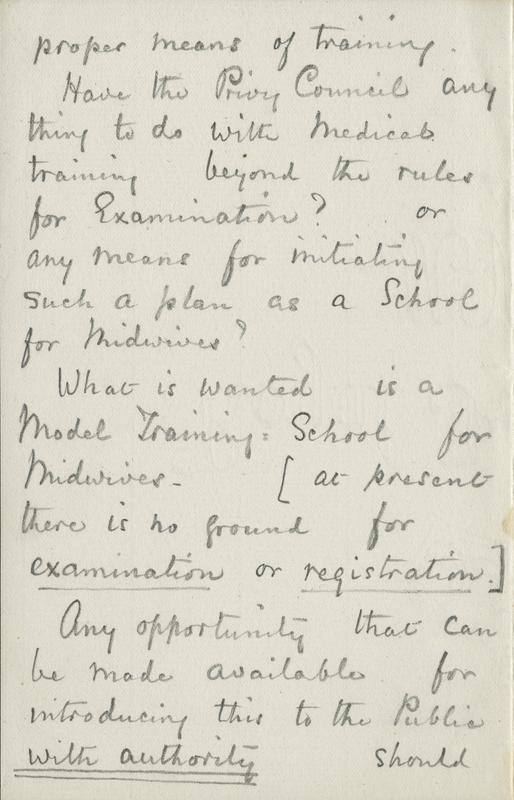 proper means of training.
Have the Privy Council any
thing to do with Medical
training beyond the rules
for Examination? or
any means for initiating
such a plan as a School
for Midwives?
What is wanted is a
Model Training-School for
Midwives- [at present
there is no ground for
examination or registration.]
Any opportunity that can
be made available for
introducing this to the Public
with authority should